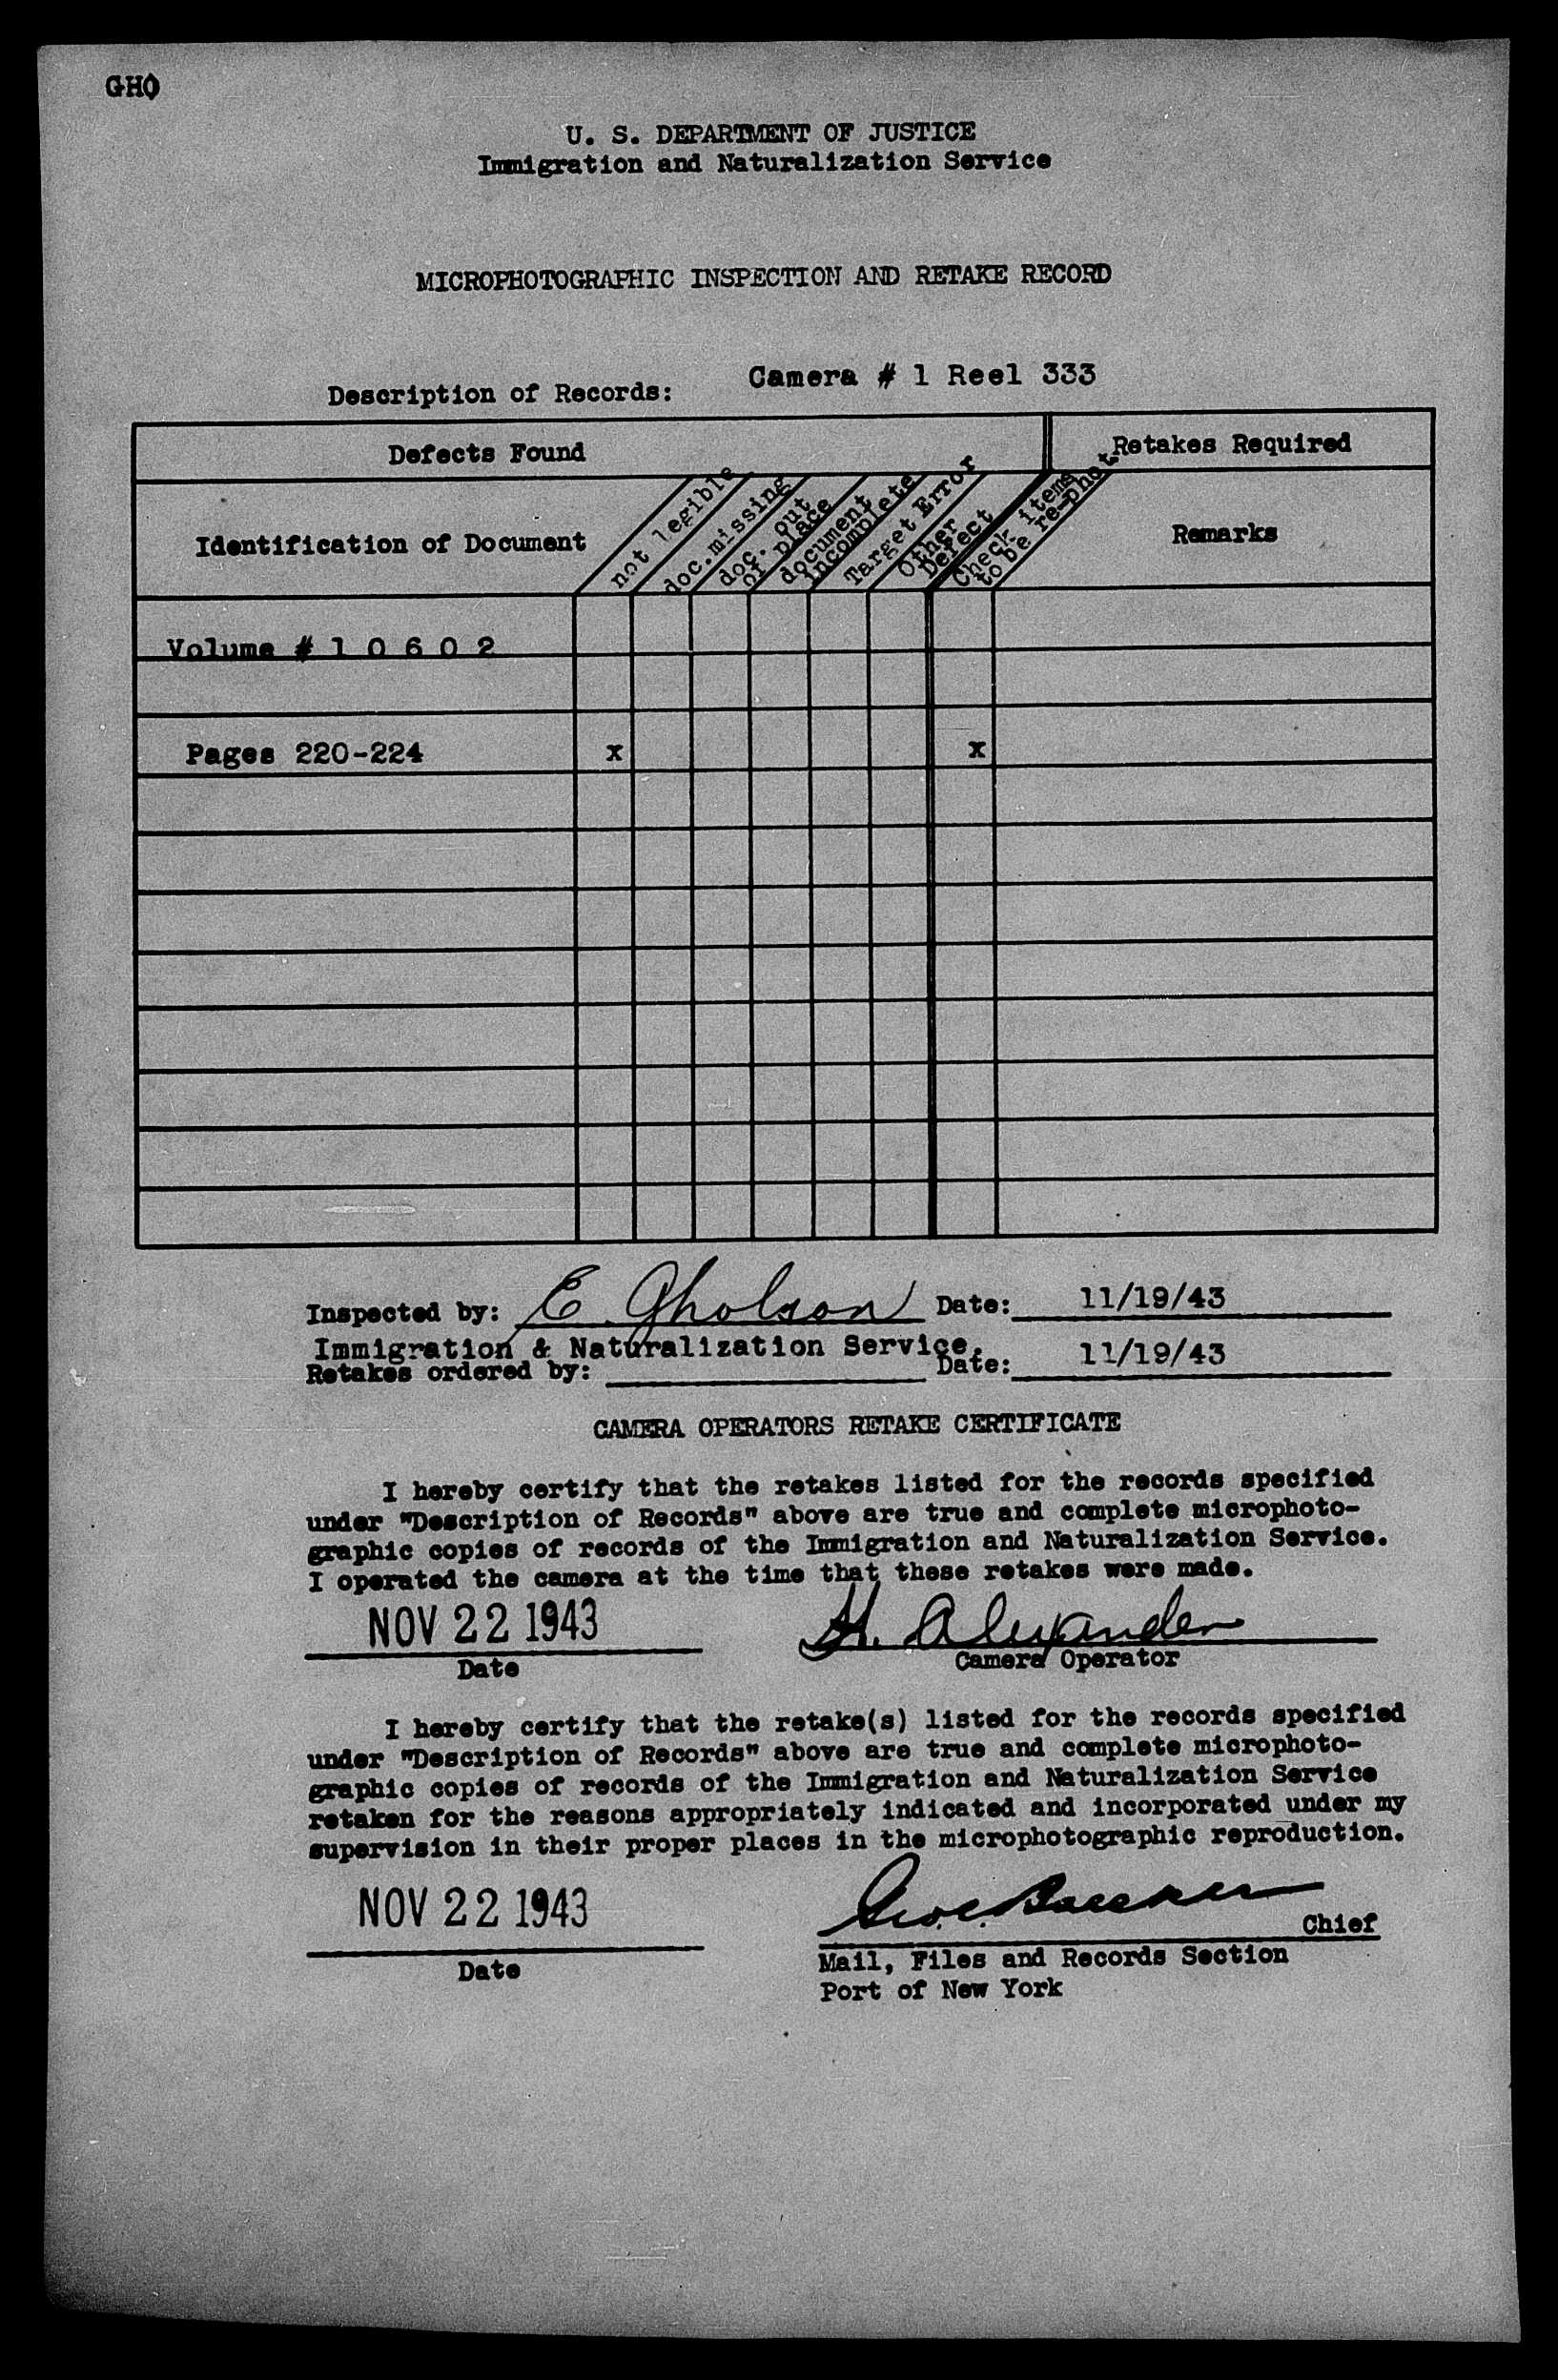 GHO
U. S. DEPARTMENT OF JUSTICE
Immigration and Naturalization Service
MICROPHOTOGRAPHIC INSPECTION AND RETAKE RECORD
Description of Records: Camera # 1 Reel 333
Defects Found Retakes Required
Identification of Document
not legible
doc.missing
doc. out
of place
document
incomplete
Target Error
Other
Defect
Check items
to be re-phot.
Remarks
Volume # 1 0 6 0 2
Pages 220-224 x x
Inspected by: E. Gholson Date: 11/19/43
Immigration & Naturalization Service.
Retakes ordered by: Date: 11/19/43
CAMERA OPERATORS RETAKE CERTIFICATE
I hereby certify that the retakes listed for the records specified
under "Description of Records" above are true and complete microphoto-
graphic copies of records of the Immigration and Naturalization Service.
I operated the camera at the time that these retakes were made.
NOV 22 1943 H. Alexander
Date Camera Operator
I hereby certify that the retake(s) listed for the records specified
under "Description of Records" above are true and complete microphoto-
graphic copies of records of the Immigration and Naturalization Service
retaken for the reasons appropriately indicated and incorporated under my
supervision in their proper places in the microphotographic reproduction.
NOV 22 1943
Chief
Date
Mail, Files and Records Section
Port of New York